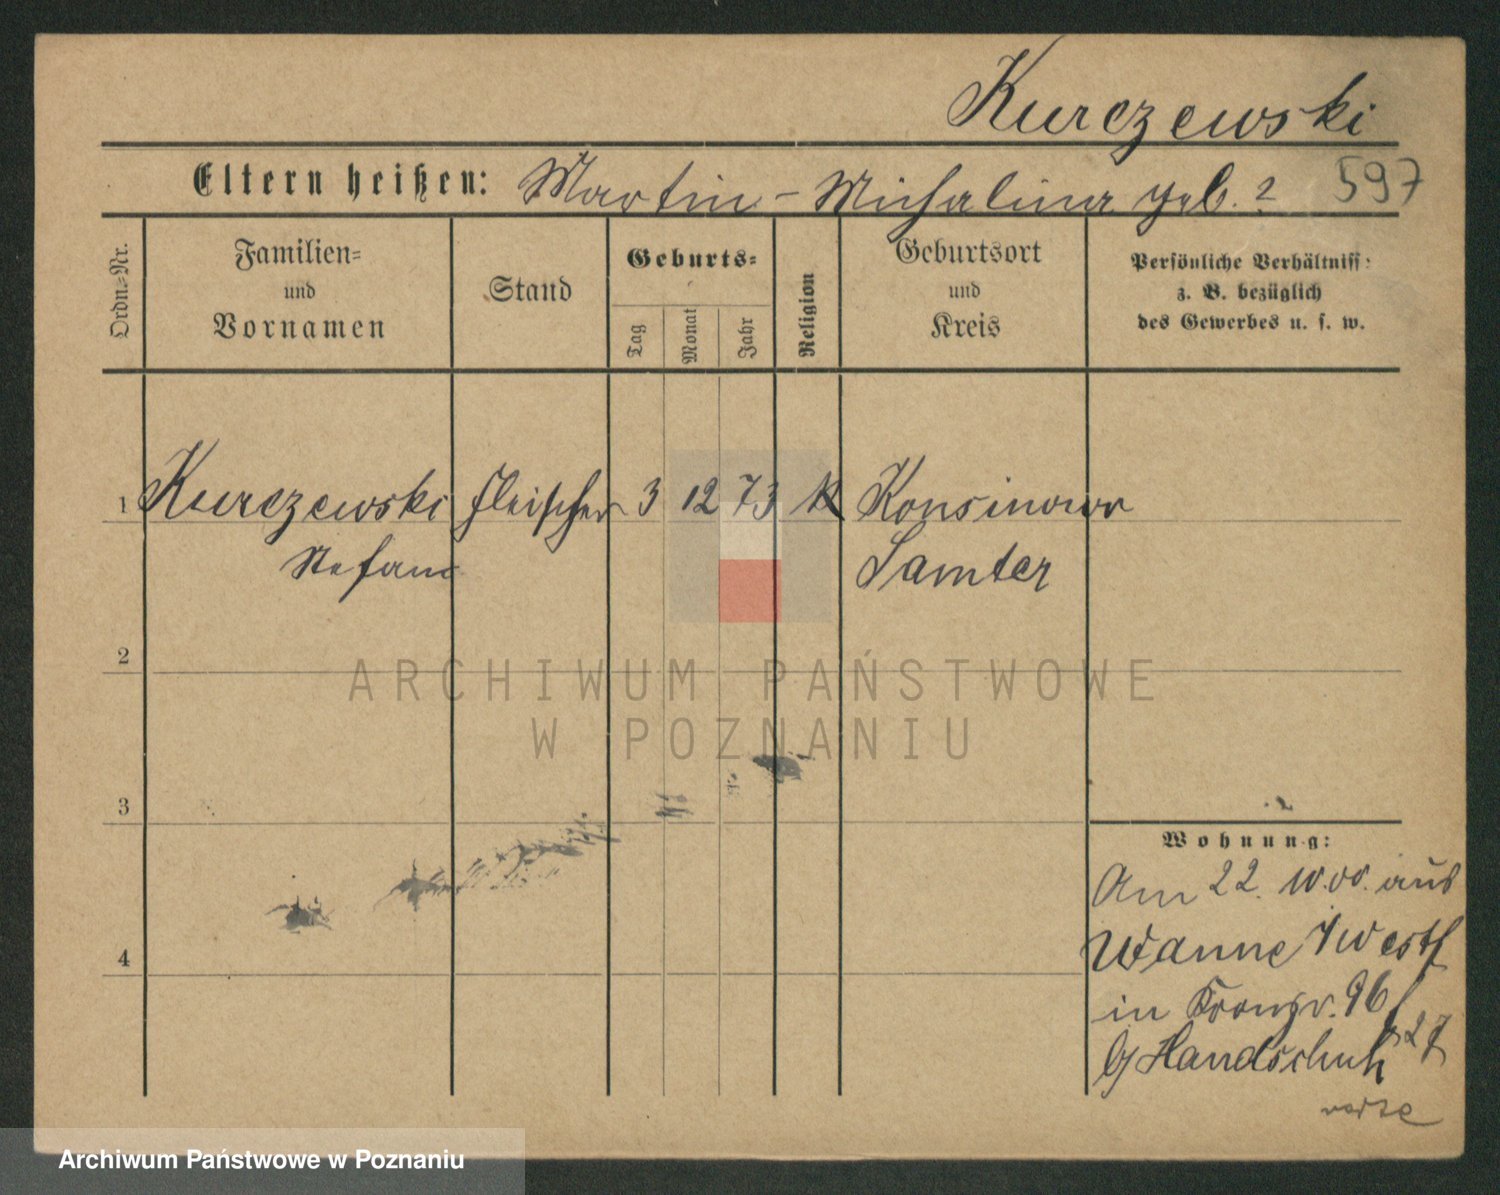 Kurczewski
Eltern heißen: Martin - Michalina geb. ?
597
Ordn.-Nr.
Familien-
und
Vornamen
Stand
Geburts-
Tag
Monat
Jahr
Religion
Geburtsort
und
Kreis
Persönliche Verhältniss
z. B. bezüglich
des Gewerbes u. s. w.
1 Kurczewski Fleischer 3 12 73 K Konsinowo
Stefan Samter
2
ARCHIWUM PAŃSTWOWE
W POZNANIU
3
Wohnung:
Am 22. 10.00. aus
4
Wanne Westf
in 96
27
b/ Handschuh
Archiwum Państwowe w Poznaniu